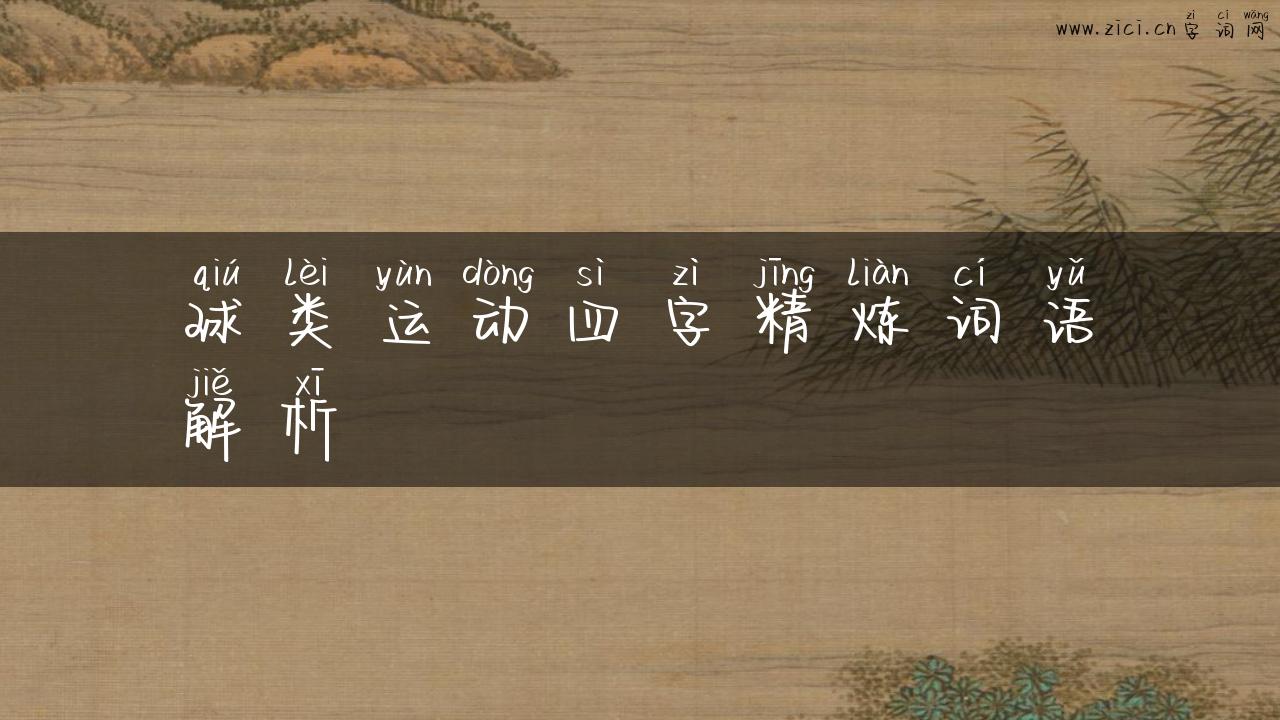 www.zici.cn zì cí wǎng 字词网
qiú lèi yùn dòng sì zì jīng liàn cí yǔ
球类运动四字精炼词语
jiě xī
解析